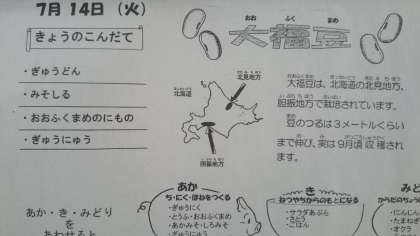 7月 14日 (火)
きょうのこんだて
・ぎゅうどん
・みそしる
・おおふくまめのにもの
・ぎゅうにゅう
おお ふく まめ
大福豆
北見地方
北海道
胆振地方
大福豆は、北海道の北見地方、
胆振地方で栽培されています。
豆のつるは3メートルくらい
まで伸び、実は9月頃 収穫され
ます。
あか・き・みどり
をあわせると
あか
ち・にく・ほねをつくる
・ぎゅうにく
・とうふ・おおふくまめ
・あかみそ・しろみそ
・ぎゅうにゅう
き
ねつやちからのもとになる
・サラダあぶら
・さとう
・ごはん
みど
からだのちょう
・にんじん
・たまねぎ
・オクラ